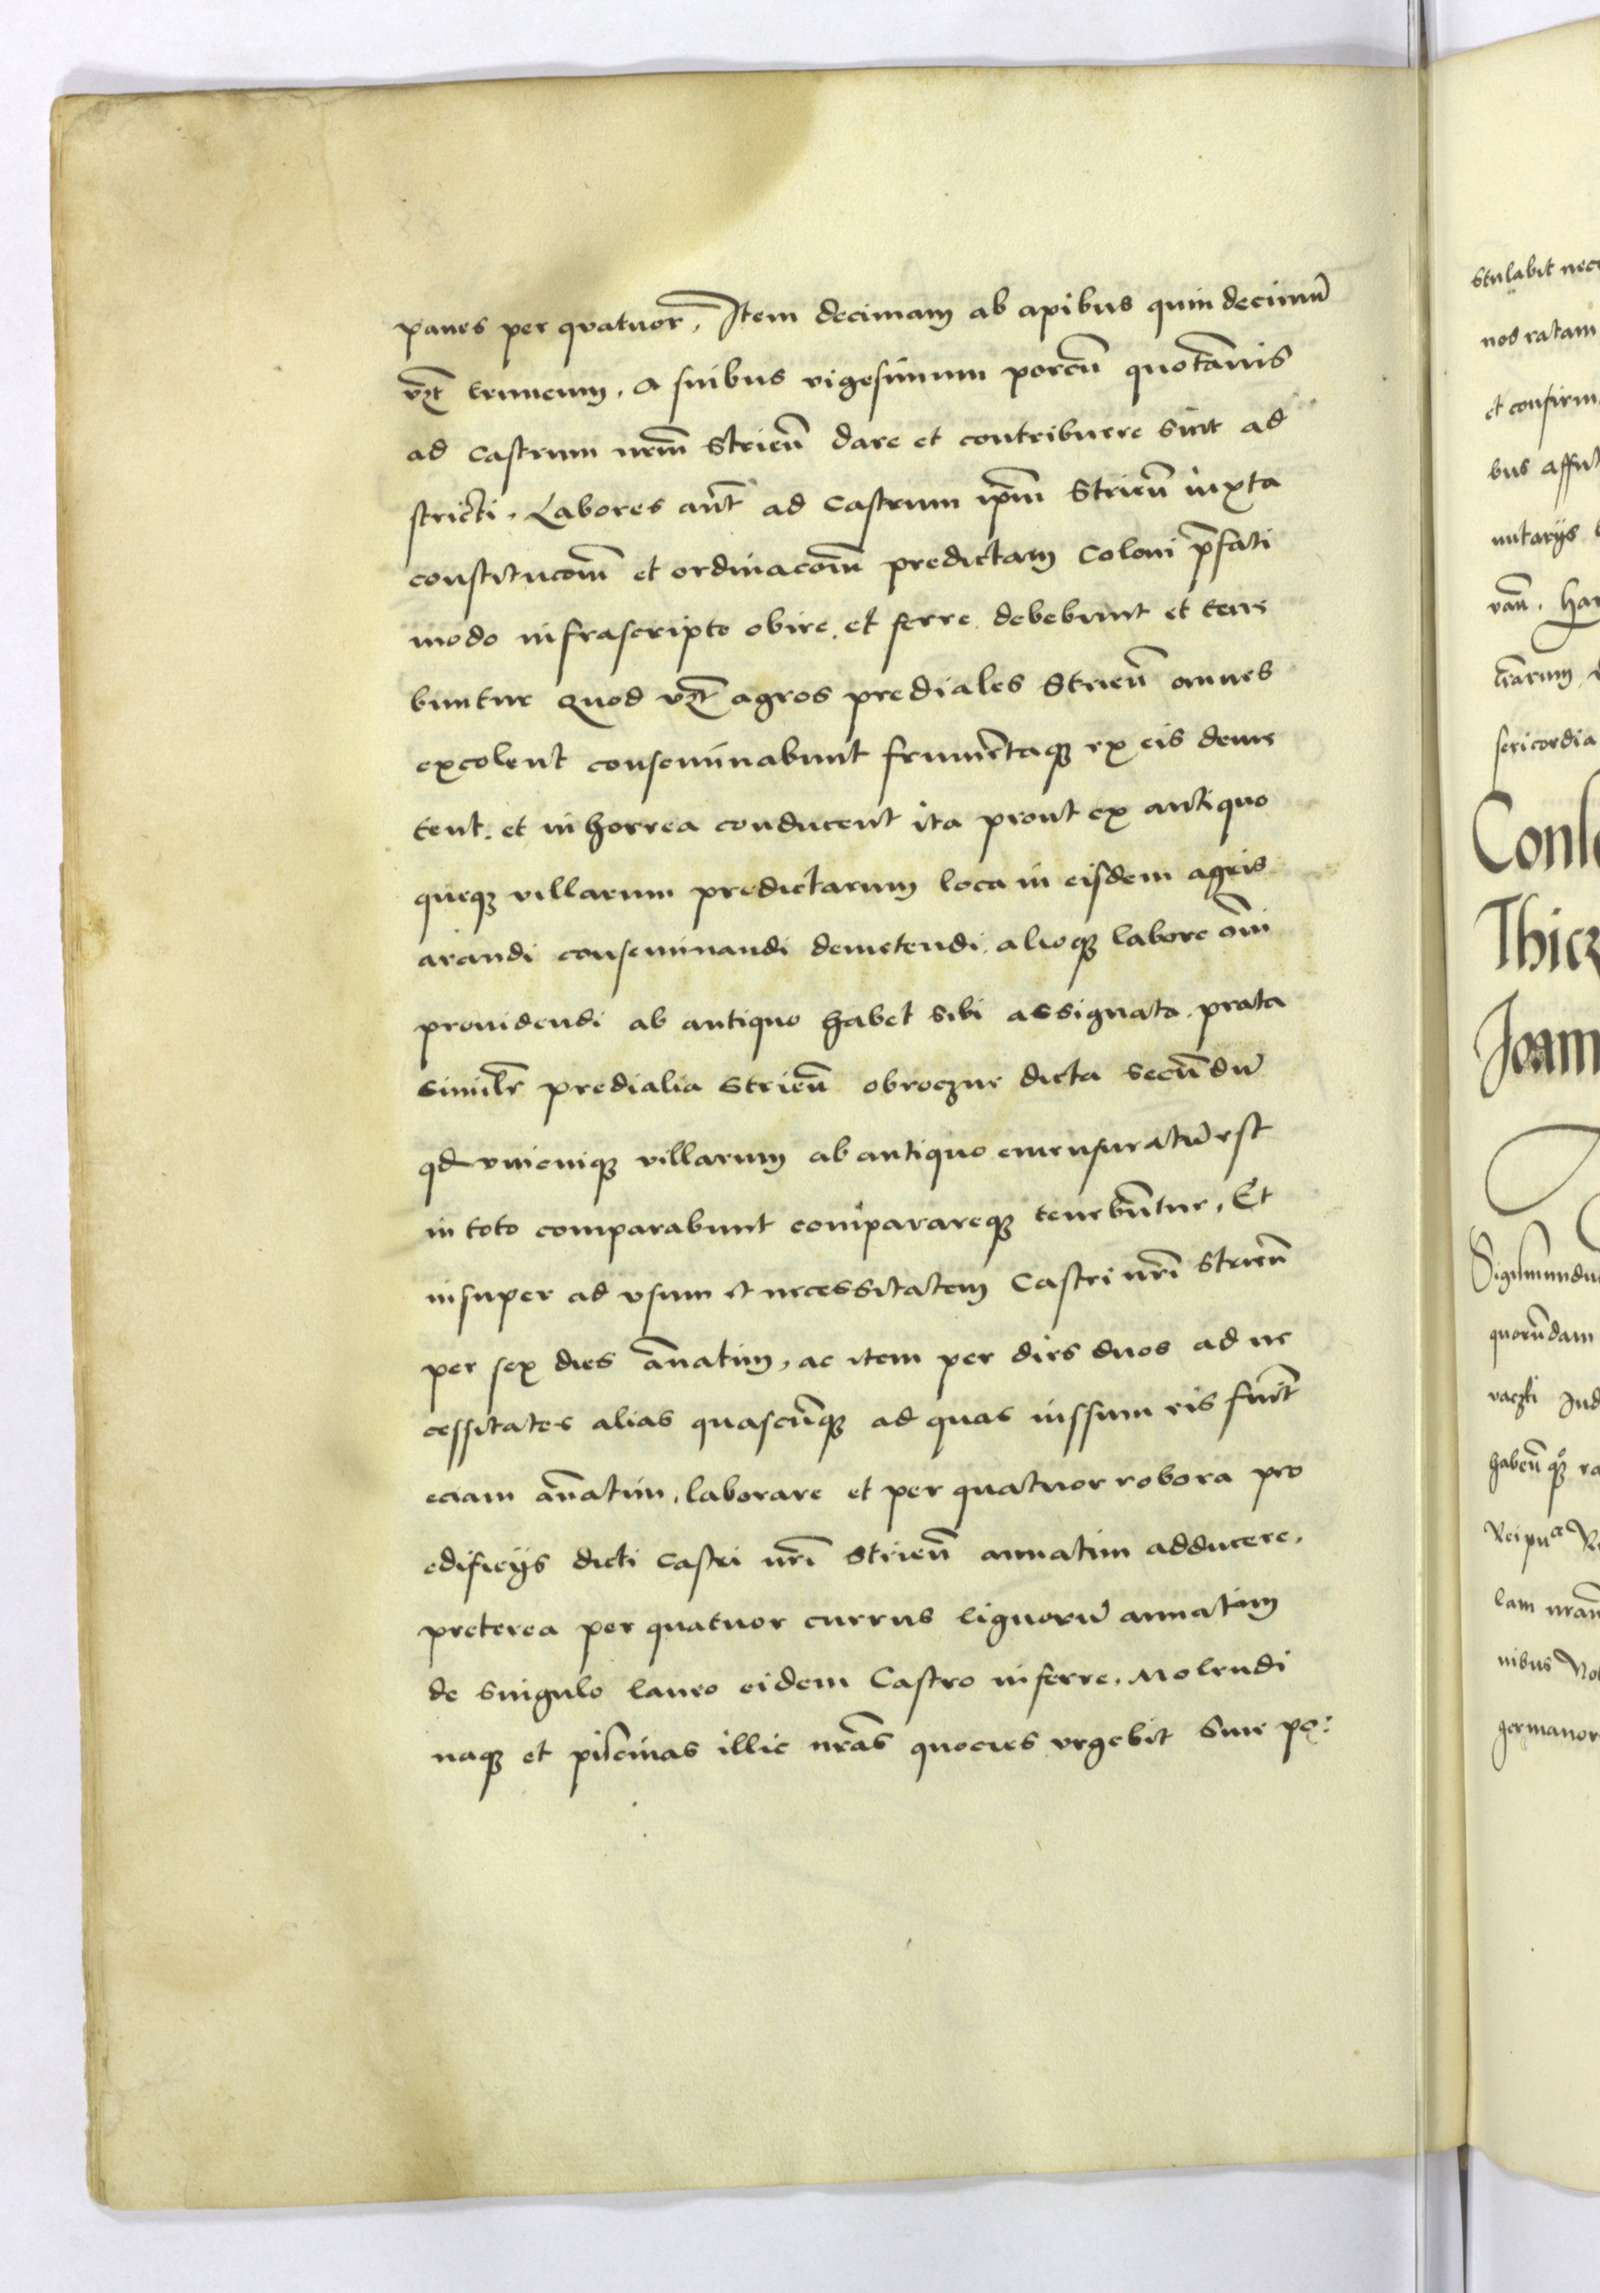 panes per quatuor, Item decimam ab apibus quindecimū
vzt truneum, a suibus vigesimum porcū quotānis
ad castrum nrm̄ Strien̄ dare et contribuere sint ad
stricti. Labores aūt ad castrum ipm̄ Strien̄ iuxta
constitucōm et ordinacōm predictam coloni p̄fati
modo infrascripto obire et ferre debebunt et tene
buntur quod vzt agros prediales Strien̄ omnes
excolent conseminabunt frumētaqȝ ex eis deme
tent. et in horrea conducent ita prout ex antiquo
queqȝ villarum predictarum loca in eisdem agris
arandi conseminandi demetendi alioqȝ labore om̄i
prouidendi ab antiquo habet sibi assignata. prata
similr̄ predialia Strien̄ obroczne dicta secūdū
qd vnicuiqȝ villarum ab antiquo emensuratū est
in toto comparabunt comparareqȝ tenebūtur, Et
insuper ad vsum et necessitatem Castri nrī Strien̄
per sex dies ānatim, ac item per dies duos ad ne
cessitates alias quascūqȝ ad quas iussum eis fuīt
eciam ānatim, laborare et per quatuor robora pro
edificijs dicti castri nrī Strien̄ annatim adducere,
preterea per quatuor currus lignorū annatim
de singulo laneo eidem Castro inferre. Molendi
naqȝ et piscinas illic nrās quocies vrgebit siue po:
stulabit nece
nos ratam
et confirm
bus affut
nutarijs
van̄. Har
trārum
sericordia
Conl
Thicz
Joann
Sigismundu
quorūdam
vaczki Jud
haben̄ qȝ ra
Reipuce
lam nrām
nibus Nob
germanor